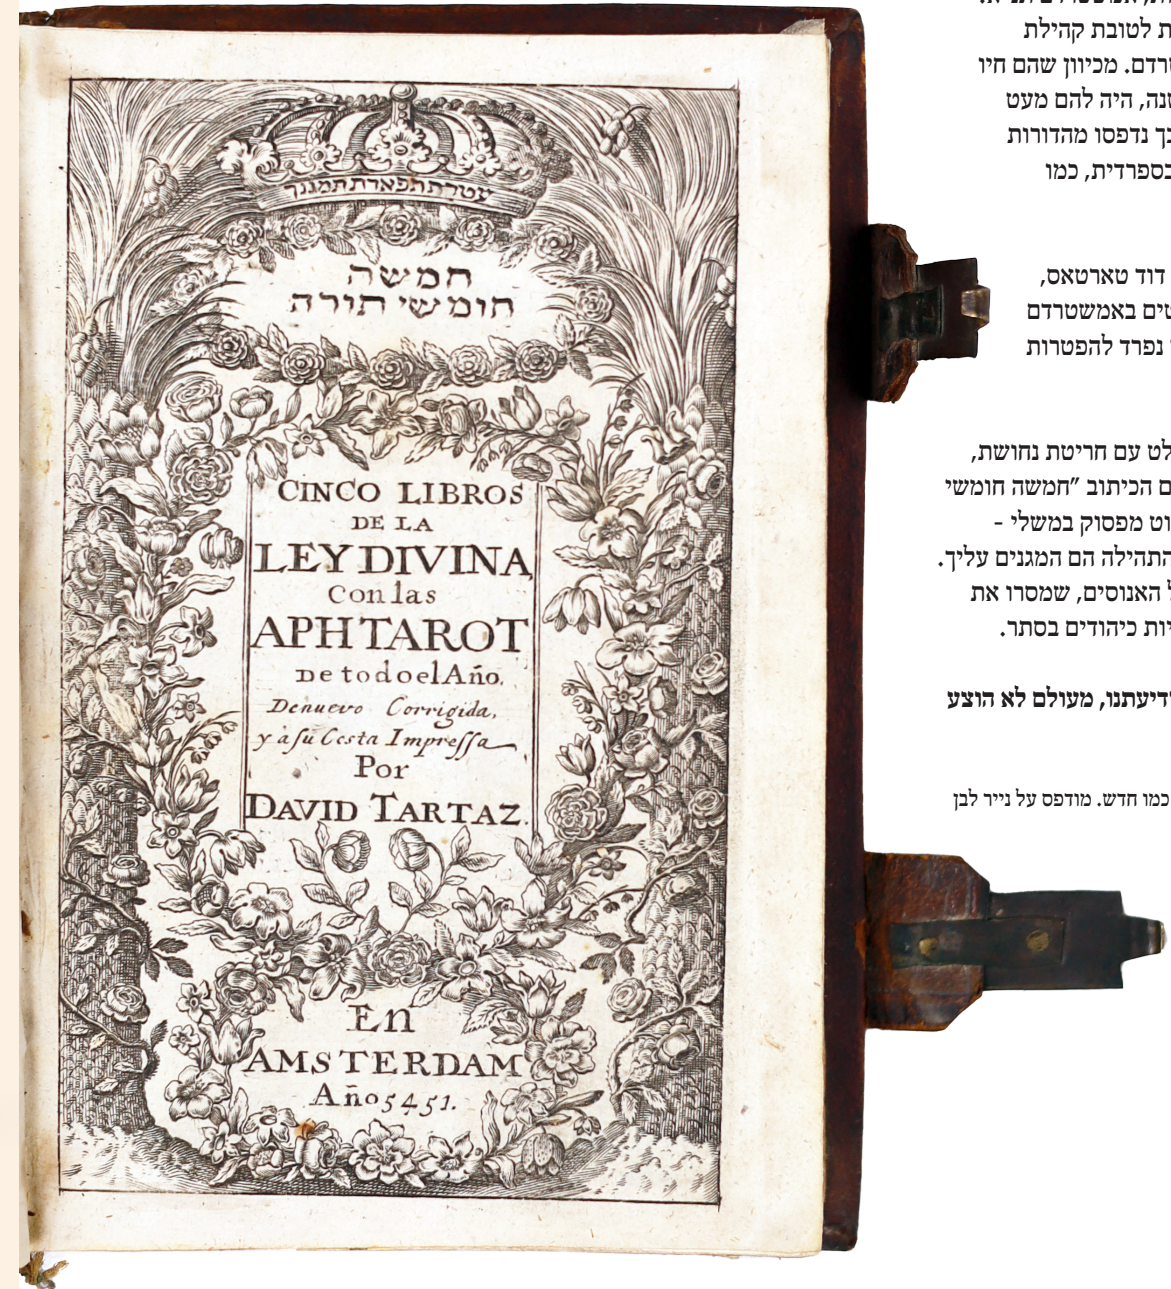 עטרת תפארת תמגנך
חמשה
חומשי תורה
CINCO LIBROS
DE LA
LEY DIVINA
Con las
APHTAROT
De todo el Año.
De nuevo Corrigida,
y a su Costa Impressa
Por
DAVID TARTAZ.
En
AMSTERDAM
Año 5451.
ת לטובת קהילת
רדם. מכיוון שהם חיו
נה, היה להם מעט
ך נדפסו מהדורות
בספרדית, כמו
דוד טארטאס,
טים באמשטרדם
נפרד להפטרות
לט עם חריטת נחושת,
ם הכיתוב "חמשה חומשי
וט מפסוק במשלי -
התהילה הם המגנים עליך.
ל האנוסים, שמסרו את
יות כיהודים בסתר.
דיעתנו, מעולם לא הוצע
כמו חדש. מודפס על נייר לבן